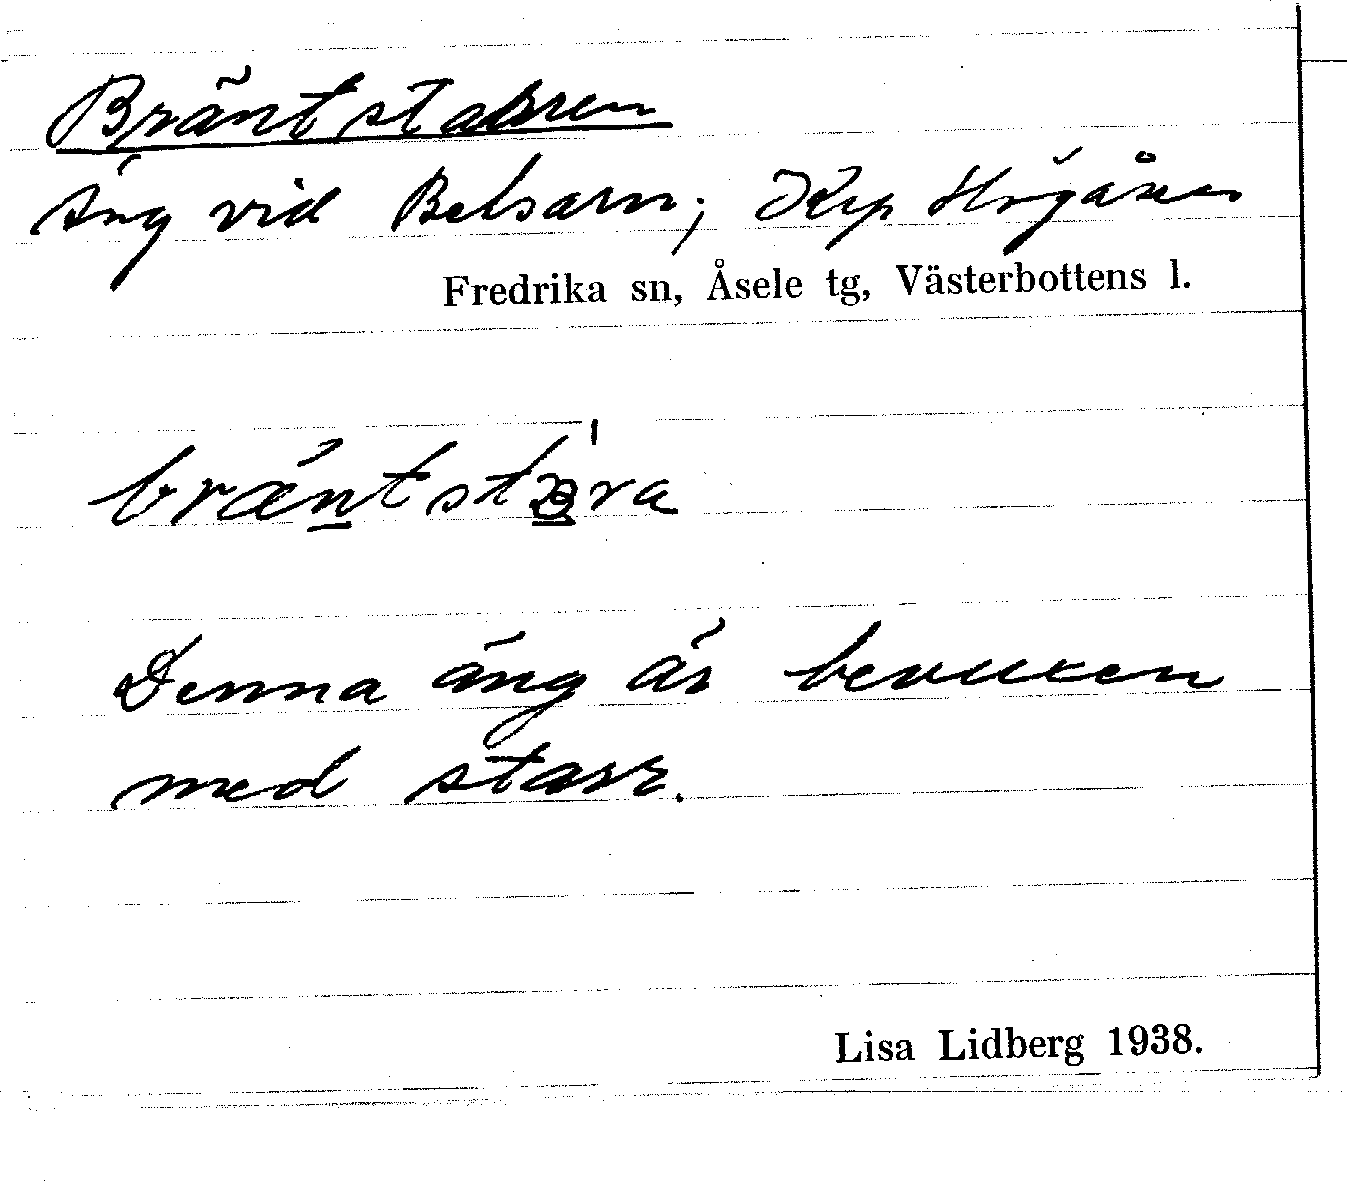 Bräntstarren
Äng vid Belsarn; Kp Högåsen
Fredrika sn, Åsele tg, Västerbottens l.
Denna äng är bevuxen
med starr.
Lisa Lidberg 1938.